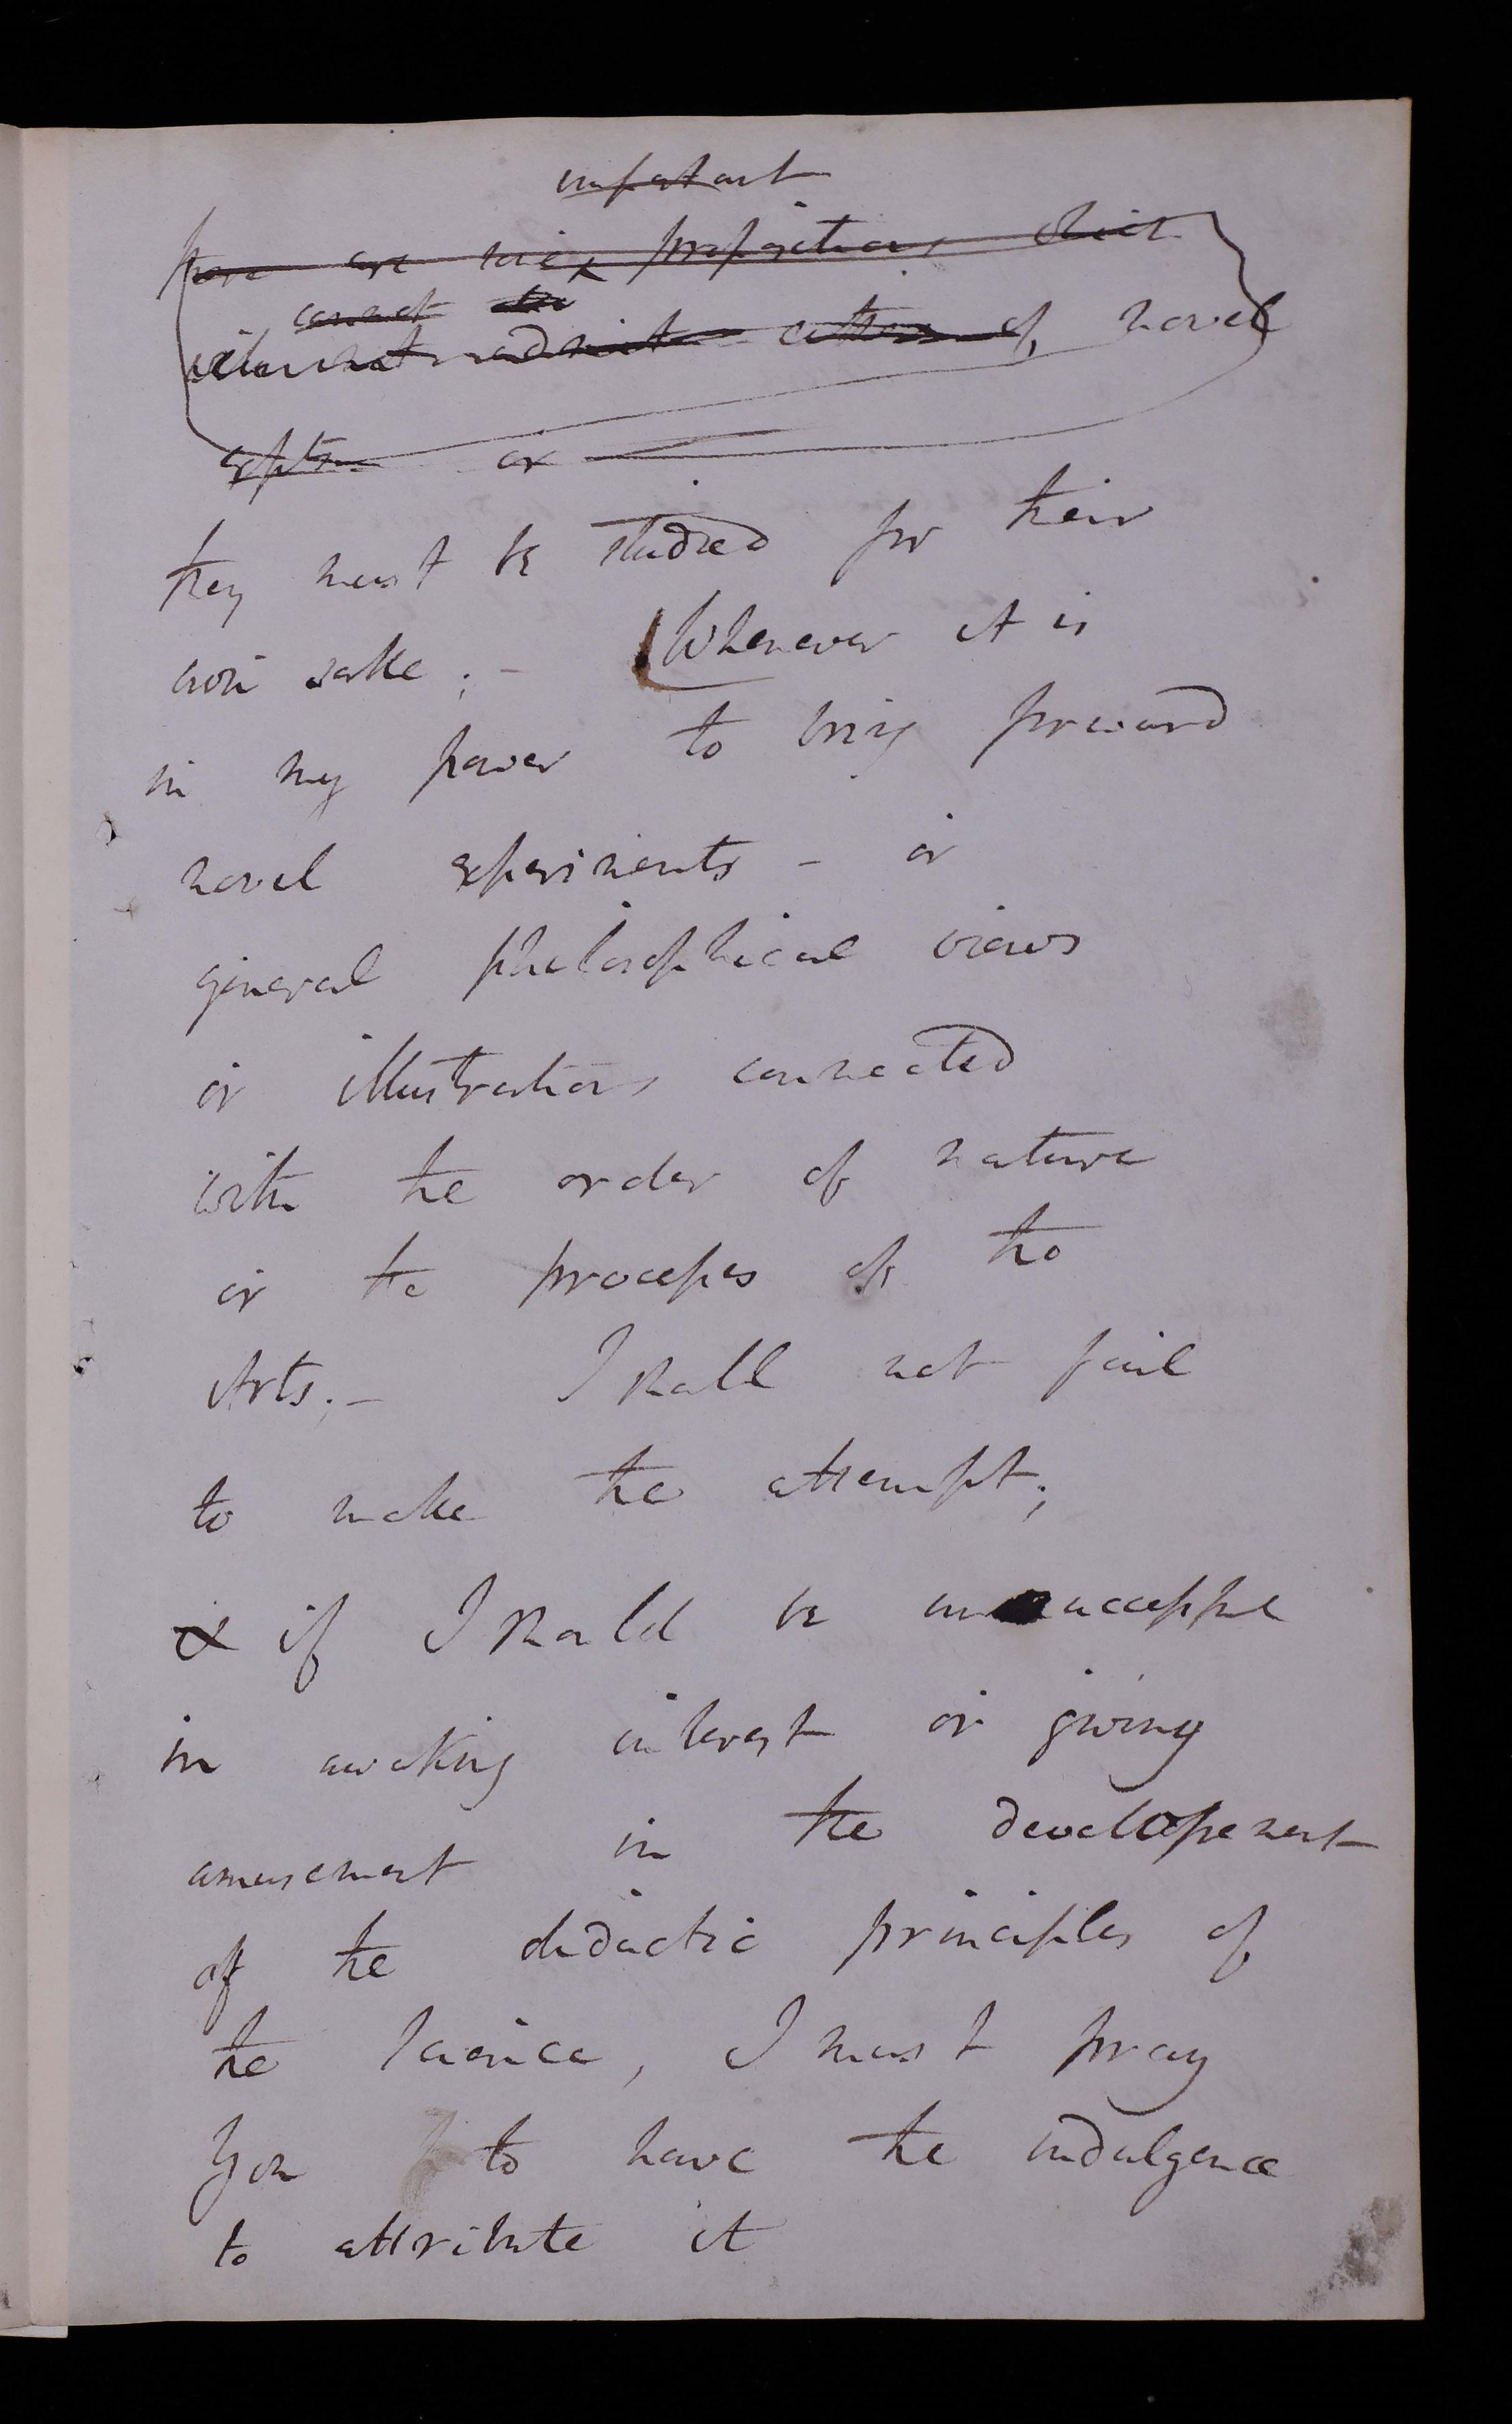 important
there are some propositions which
cannot
will not admit either of novel
or
they must be studied for their
own sake; - Whenever it is
in my power to bring forward
novel experiments - or
general philosophical views
or illustrations connected
with the order of nature
or the processes of the
Arts; - I shall not fail
to make the attempt;
& if I should be unsuccessful
in awaking interest or giving
amusement in the developement
of the didactic principles of
the Science, I must pray
you to have the indulgence
to attribute it